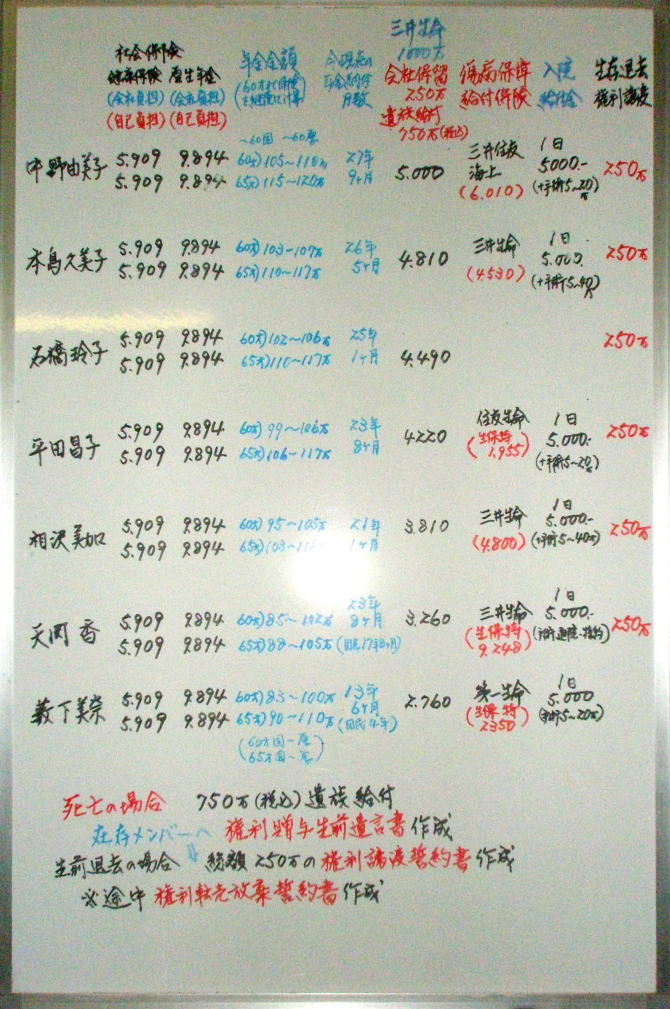 三井生命
1000万
社会保険 年金金額 今現在の 会社保留 傷病保障 入院 生存退去
健康保険 厚生年金 (60才まで保険 年金納付 250万 給付保険 給付金 権利譲渡
(会社負担) (会社負担) 月数 遺族給付
(自己負担) (自己負担) 750万(税込)
~60国 ~60厚
中野由美子 5.909 9.894 60才)105~110万 27年 5.000 三井住友 1日 250万
5.909 9.894 65才)115~120万 9ヶ月 海上 5000.-
(6.010) (+手術5~20万)
本島久美子 5.909 9.894 60才)103~107万 26年 4.810 三井生命 1日 250万
5.909 9.894 65才)110~117万 5ヶ月 (4.530) 5.000.
(+手術5~40万)
石橋玲子 5.909 9.894 60才)102~106万 25年 4.490 250万
5.909 9.894 65才)110~117万 1ヶ月
平田昌子 5.909 9.894 60才)99~106万 23年 4220 住友生命 1日 250万
5.909 9.894 65才)106~117万 8ヶ月 (生保特 5.000.-
1,955) (+手術5~20万)
相沢美加 5.909 9.894 60才)95~105万 21年 3.810 三井生命 1日 250万
5.909 9.894 65才)103~ 1ヶ月 (4.800) 5.000.-
(+手術5~40万)
天岡香 5.909 9.894 60才)85~102万 23年 3.260 三井生命 1日 250万
5.909 9.894 65才)88~105万 8ヶ月 (生保特 5.000.-
(国民17年8ヶ月) 9.248)
藪下美奈 5.909 9.894 60才)83~100万 13年 2.760 第一生命 1日
5.909 9.894 65才)90~110万 6ヶ月 (生保特 5.000
(国民4年) 2350) (手術5~20万)
(60才国~厚
65才国~厚)
死亡の場合 750万(税込)遺族給付
在存メンバーへ 権利贈与生前遺言書作成
生前退去の場合 総額250万の権利譲渡誓約書作成
※途中権利転売放棄誓約書作成